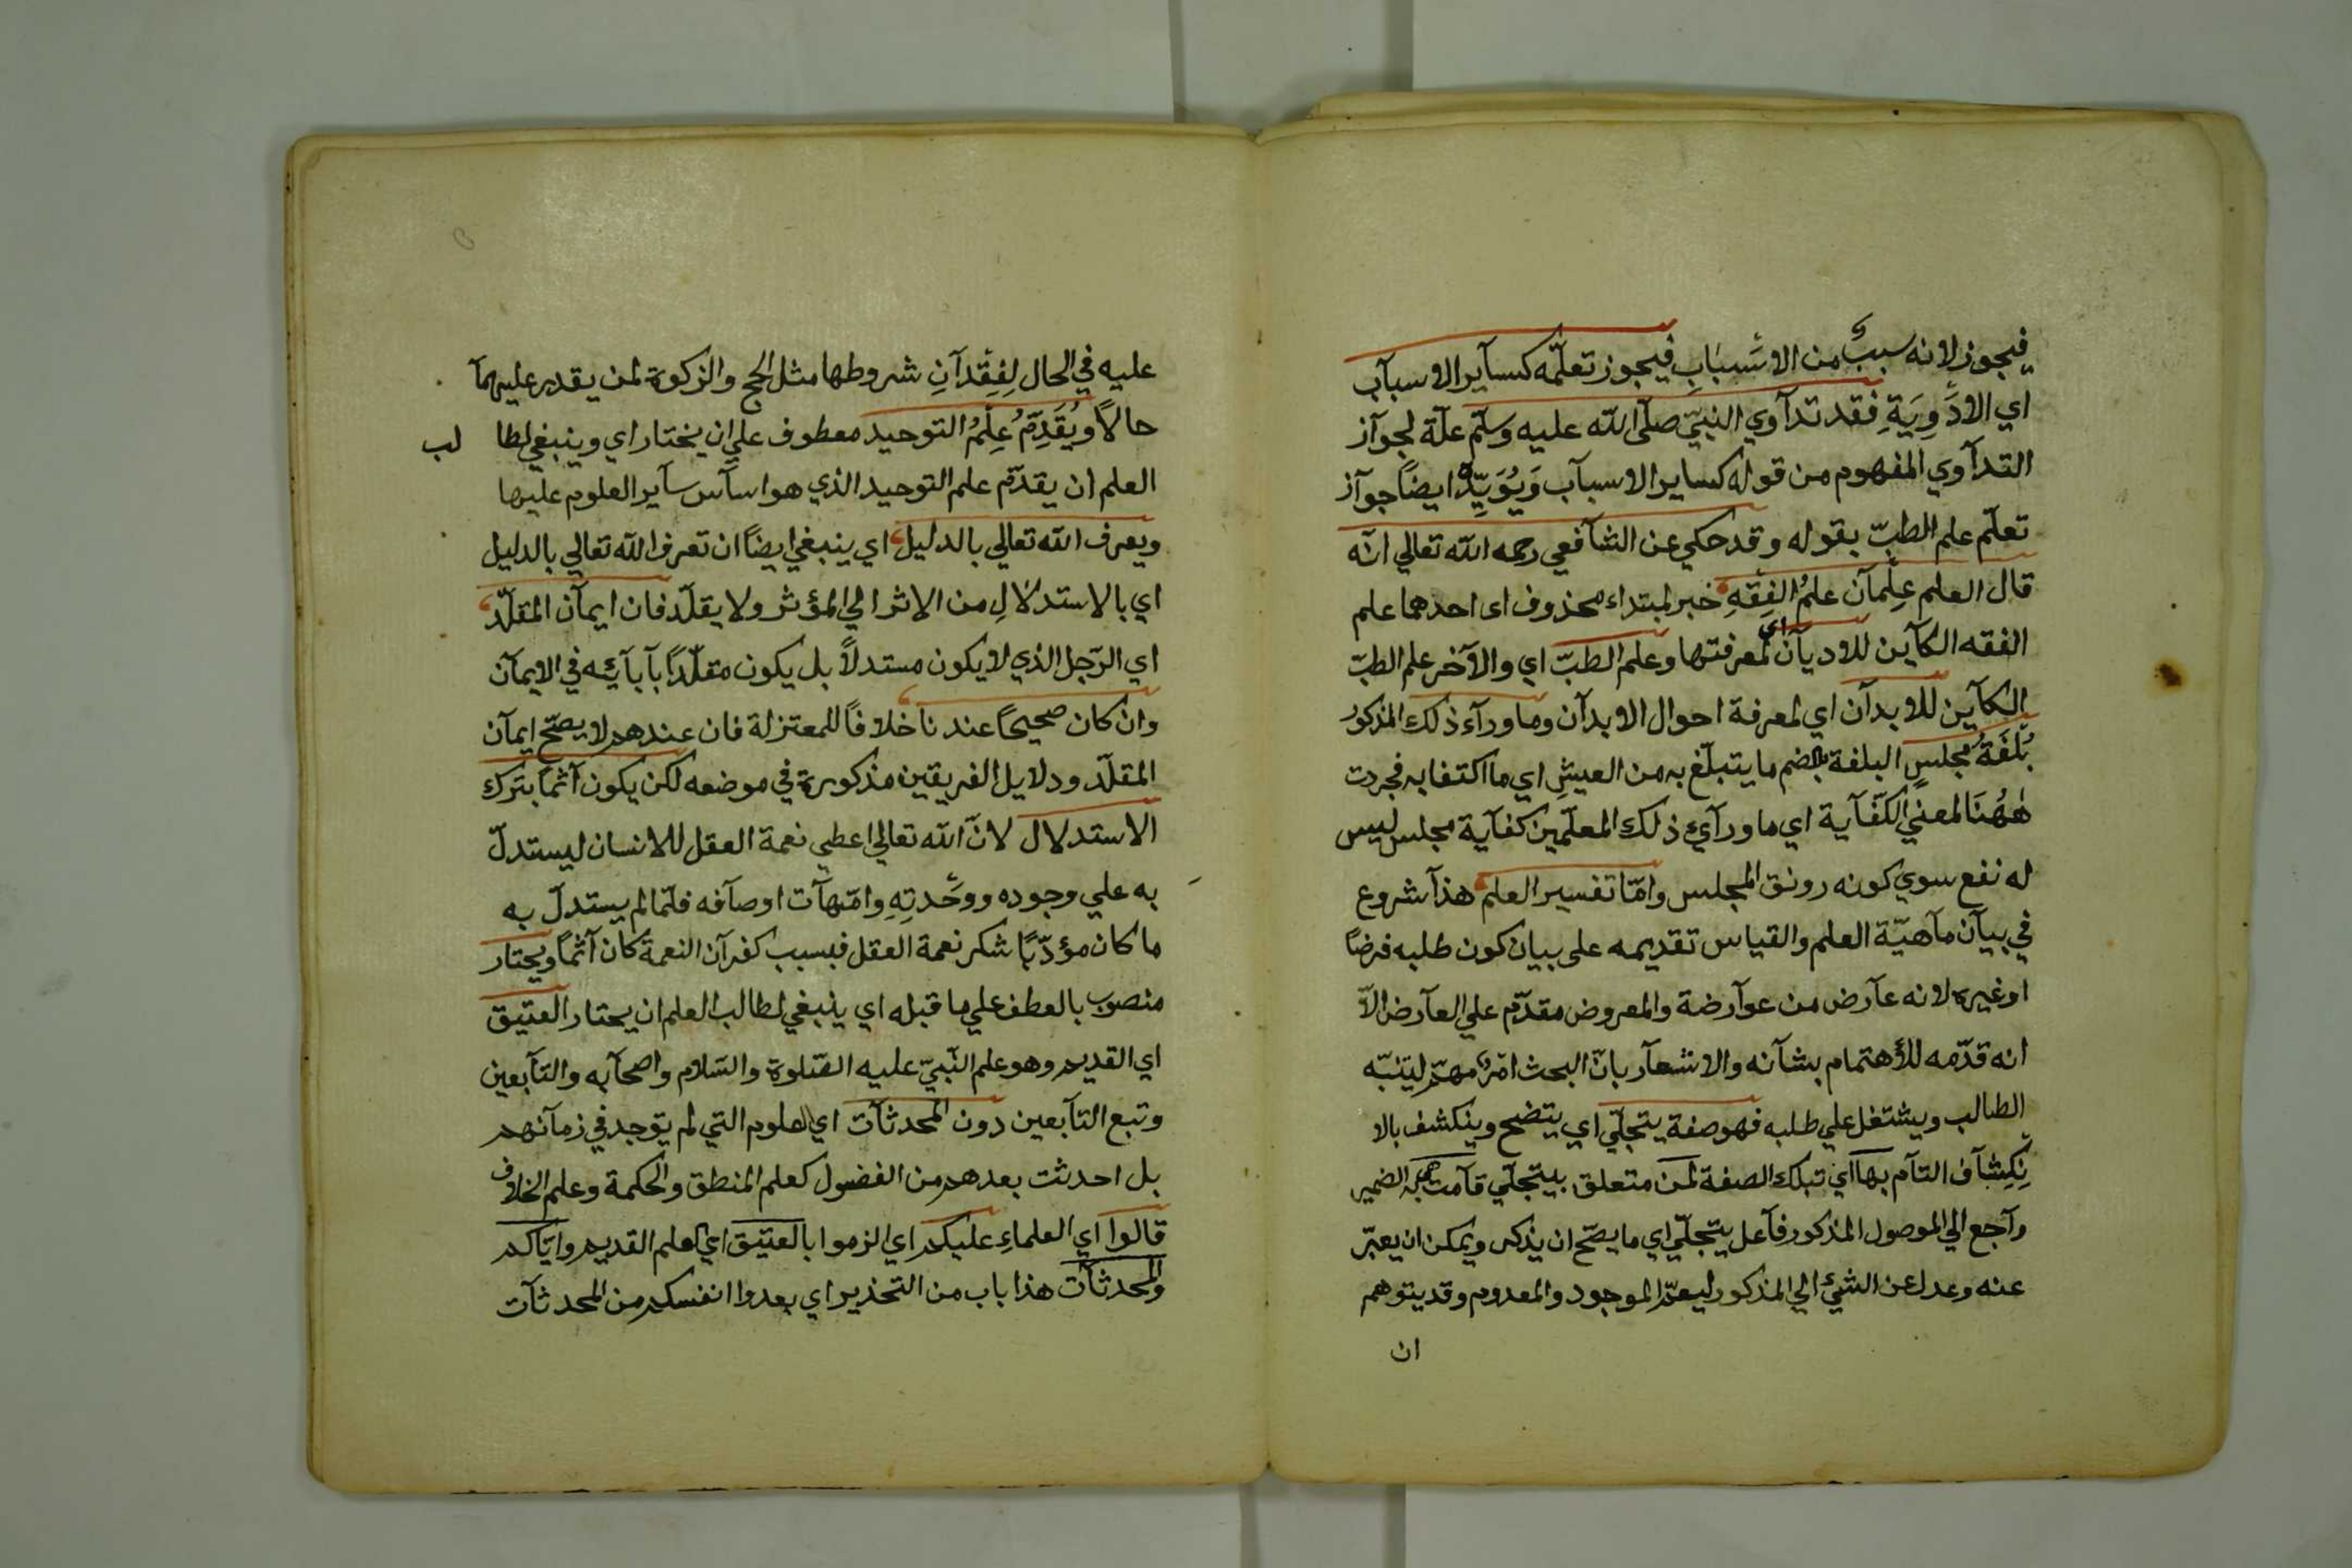 فيجوز لانه سببٌ من الاسْبَابِ فيجوز تعلّمه كسآير الاسبآب
اي الادْوِيَةِ فقد تدآوي النبيّ صلّى الله عليه وسلّم علّة لجوآز
التدآوي المفهوم من قوله كساير الاسبآب وَيُؤَيِّدُه ايضًا جوآز
تعلّم علم الطبّ بقوله وقد حكي عن الشآفعي رحمه الله تعالي انّه
قال العلم عِلْمآن علمُ الفِقْهِ خبر لمبتداء محذوف اى احدهما علم
الفقه الكآين للاديآن اي لمعرفتها وعلم الطبّ اي والآخر علم الطبّ
الكآين للابدآن اي لمعرفة احوال الابدآن وما ورآء ذلك المذكور
بُلْغَةُ مجلسٍ البلغة بالضم ما يتبلّغ به من العيشِ اي ما اكتفا به فجردت
هٰهُنَا لمعني الكفآية اي ما ورآئ ذلك المعلّمين كفآية مجلس ليس
له نفع سوي كونه رونق المجلس وامّا تفسير العلم هذآ شروع
في بيآن مآهيّة العلم والقياس تقديمه على بيان كون طلبه فرضًا
او غيره لانه عآرض من عوآرضة والمعروض مقدّم علي العآرض الاّ
انه قدّمه للأهتمام بشآنه والاشعآر بانّ البحث امرٌ مهمّ ليتنبّه
الطالب ويشتغل علي طلبه فهو صفة يتجلّي اي يتضح وينكشف بالا
نِكِشآف التآم بها اي تبلك الصفة لمن متعلق بيتجلّي قآمت هي به الضمير
رآجع الي الموصول المذكور فآعل يتجلّي اي ما يصّح ان يذكر ويمكن ان يعبّر
عنه وعدل عن الشيئ الي المذكور ليعمّ الموجود والمعدوم وقد يتوهم
ان
عليه في الحال لِفِقْدآنِ شروطها مثل الحج والزكوة لمن يقدر عليهمآ
حالاً ويُقَدِّمُ عِلْمُ التوحيد معطوف علي ان يختار اي وينبغي لطا لب
العلم ان يقدّم علم التوحيد الذي هو اسآس سآير العلوم عليها
ويعرف الله تعالي بالدليل اي ينبغي ايضًا ان تعرف الله تعالي بالدليل
اي بالاستدلالِ من الاثر الي المؤثر ولا يقلّد فان ايمآن المقلّد
اي الرّجل الذي لا يكون مستدلاً بل يكون مقلّدًا بآبآئِه في الايمآن
وان كان صحيحًا عندنا خلافًا للمعتزلة فان عندهم لا يصّح ايمآن
المقلّد ودلايل الفريقين مذكورة في موضعه لكن يكون آثمًا بترك
الاستدلال لانّ الله تعالي اعطي نعمة العقل للانسان ليستدلّ
به علي وجوده ووحْدتِهِ وامّهآت اوصآفه فلمّا لم يستدلّ به
ما كان مؤدّيًا شكر نعمة العقل فبسبب كفرآن النعمة كان آثمًا ويختار
منصوب بالعطف علي ما قبله اي ينبغي لطالب العلم ان يختار العتيق
اي القديم وهو علم النّبيّ عليه الصّلوة والسّلام واصحآبه والتآبعين
وتبع التآبعين دون المحدثآت اي العلوم التي لم توجد في زمآنهم
بل احدثت بعدهم من الفضول كعلم المنطق والحكمة وعلم الخلاف
قالوا اي العلماءِ عليكم اي الزموا بالعتيق اي العلم القديم وايّاكم
والمحدثآت هذا باب من التحذير اي بعدوا انفسكم من المحدثآت